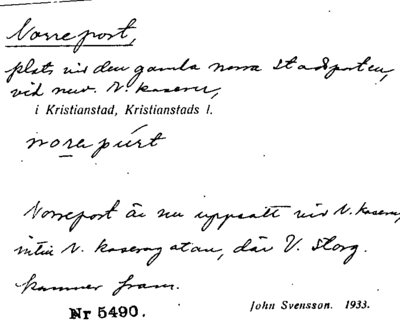 Norreport,
plats vid den gamla norra stadsporten,
vid nuv. N. kasern,
i Kristianstad, Kristianstads l.
norapúrt
Norreport är nu uppsatt vid N. kasern,
intill N. kaserngatan, där V. Storg.
kommer fram.
Nr 5490.
John Svensson. 1933.